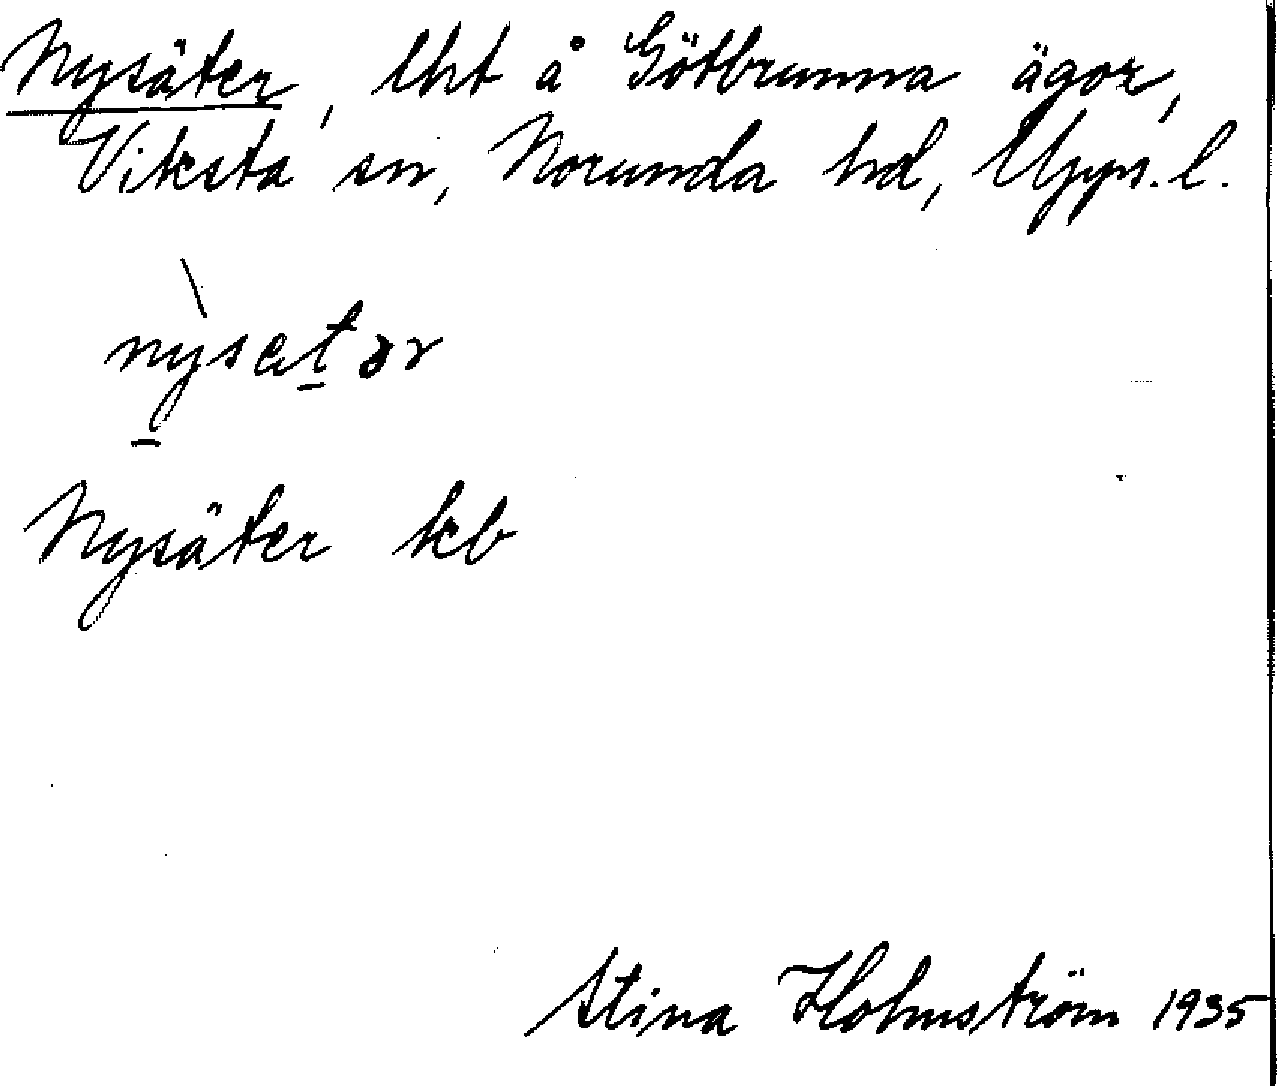 Nysäter, lht å Götbrunna ägor,
Viksta sn, Norunda hd, Upps. l.
nỳsɛtər
Nysäter kb
Stina Holmström 1935